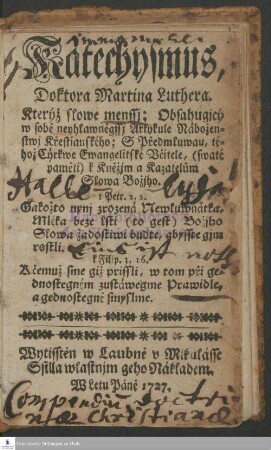 Katechysmus,
Doktora Martina Luthera.
Kterýž slowe menssj; Obsahugjcý
w sobě neyhlawněgssý Artykule Nábožen-
stwj Křestianského; S Předmluwau, té-
hož Cýrkwe Ewangelitské Včitele, (swaté
paměti) k Kněžjm a Kazatelům
Slowa Božjho.
Halle
1 Petr. 2, 2.
Gakožto nynj zrozená Newluwňátka,
Mléka beze lsti (to gest) Božjho
Slowa žádostiwi buďte, abysste gjm
rostli.
Eins ist noth
K Filip. 3. 16.
K čemuž sme giž přissli, w tom při ge-
dnostegném zůstáwegme Prawidle,
a gednostegně smyslme.
Wytisstěn w Laubně v Mikulásse
Sstilla wlastnjm geho Nákladem.
W Letu Páně 1727.
Compendiu Doctri
næ Christianæ